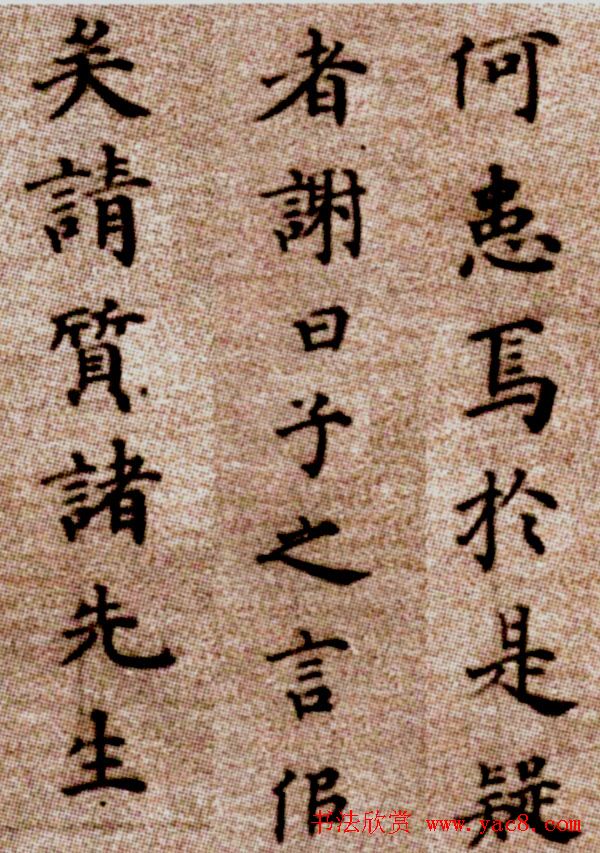 何患焉於是疑
者謝曰子之言佀
矣請質諸先生
书法欣赏 www.yac8.com